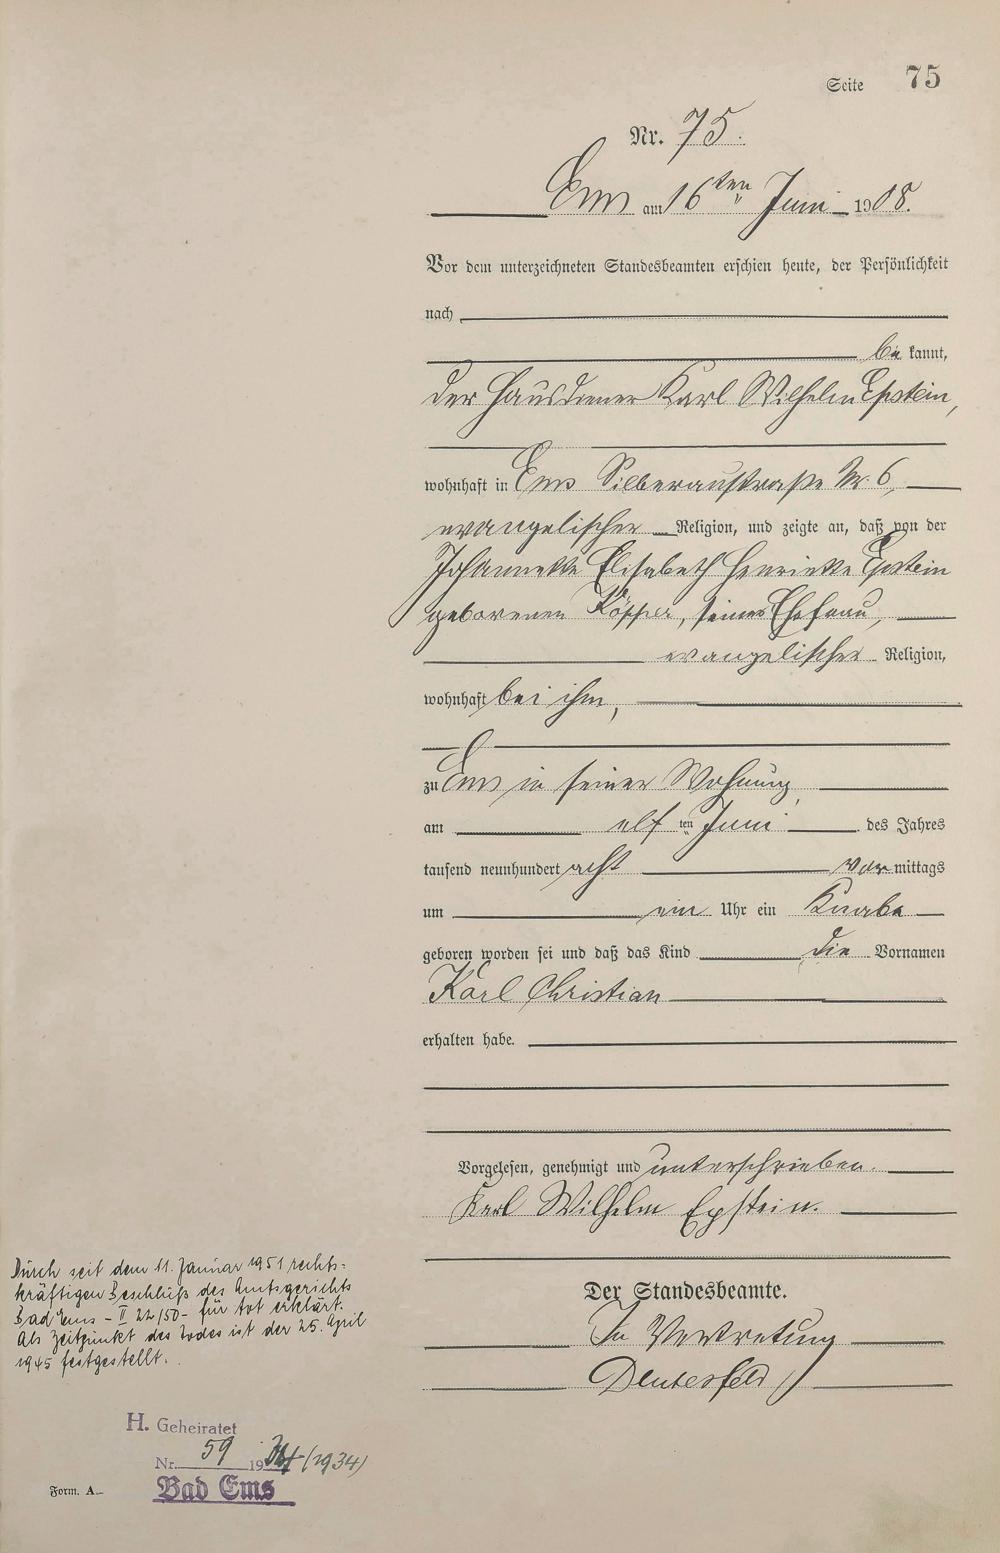 Seite 75
Nr. 75.
Ems am 16ten Juni 1908.
Vor dem unterzeichneten Standesbeamten erschien heute, der Persönlichkeit
nach
be kannt,
der Hausdiener Karl Wilhelm Epstein,
wohnhaft in Ems Silberaustraße Nr. 6,
evangelischer Religion, und zeigte an, daß von der
Johannette Elisabeth Henriette Epstein
geborenen, seiner Ehefrau,
evangelischer Religion,
wohnhaft bei ihm,
zu Ems in seiner Wohnung,
am elf ten Juni des Jahres
tausend neunhundert acht vor mittags
um ein Uhr ein Knabe
geboren worden sei und daß das Kind die Vornamen
Karl Christian
erhalten habe.
Vorgelesen, genehmigt und unterschrieben.
Karl Wilhelm Epstein.
Der Standesbeamte.
In Vertretung
Durch seit dem 11. Januar 1951 rechts-
kräftigen Beschluß des Amtsgerichts
Bad Ems - II 22/50 - für tot erklärt.
Als Zeitpunkt des Todes ist der 25. April
1945 festgestellt.
H. Geheiratet
Nr. 59 1934 (1934)
Bad Ems
Form. A.